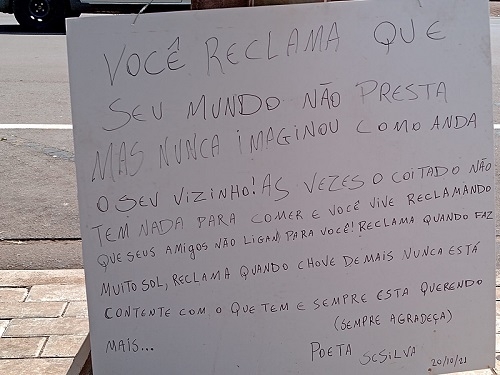 VOCÊ RECLAMA QUE
SEU MUNDO NÃO PRESTA
MAS NUNCA IMAGINOU COMO ANDA
O SEU VIZINHO! AS VEZES O COITADO NÃO
TEM NADA PARA COMER E VOCÊ VIVE RECLAMANDO
QUE SEUS AMIGOS NÃO LIGAM PARA VOCÊ! RECLAMA QUANDO FAZ
MUITO SOL, RECLAMA QUANDO CHOVE DEMAIS NUNCA ESTÁ
CONTENTE COM O QUE TEM E SEMPRE ESTA QUERENDO
MAIS... (SEMPRE AGRADEÇA)
POETA SCSILVA 20/10/21